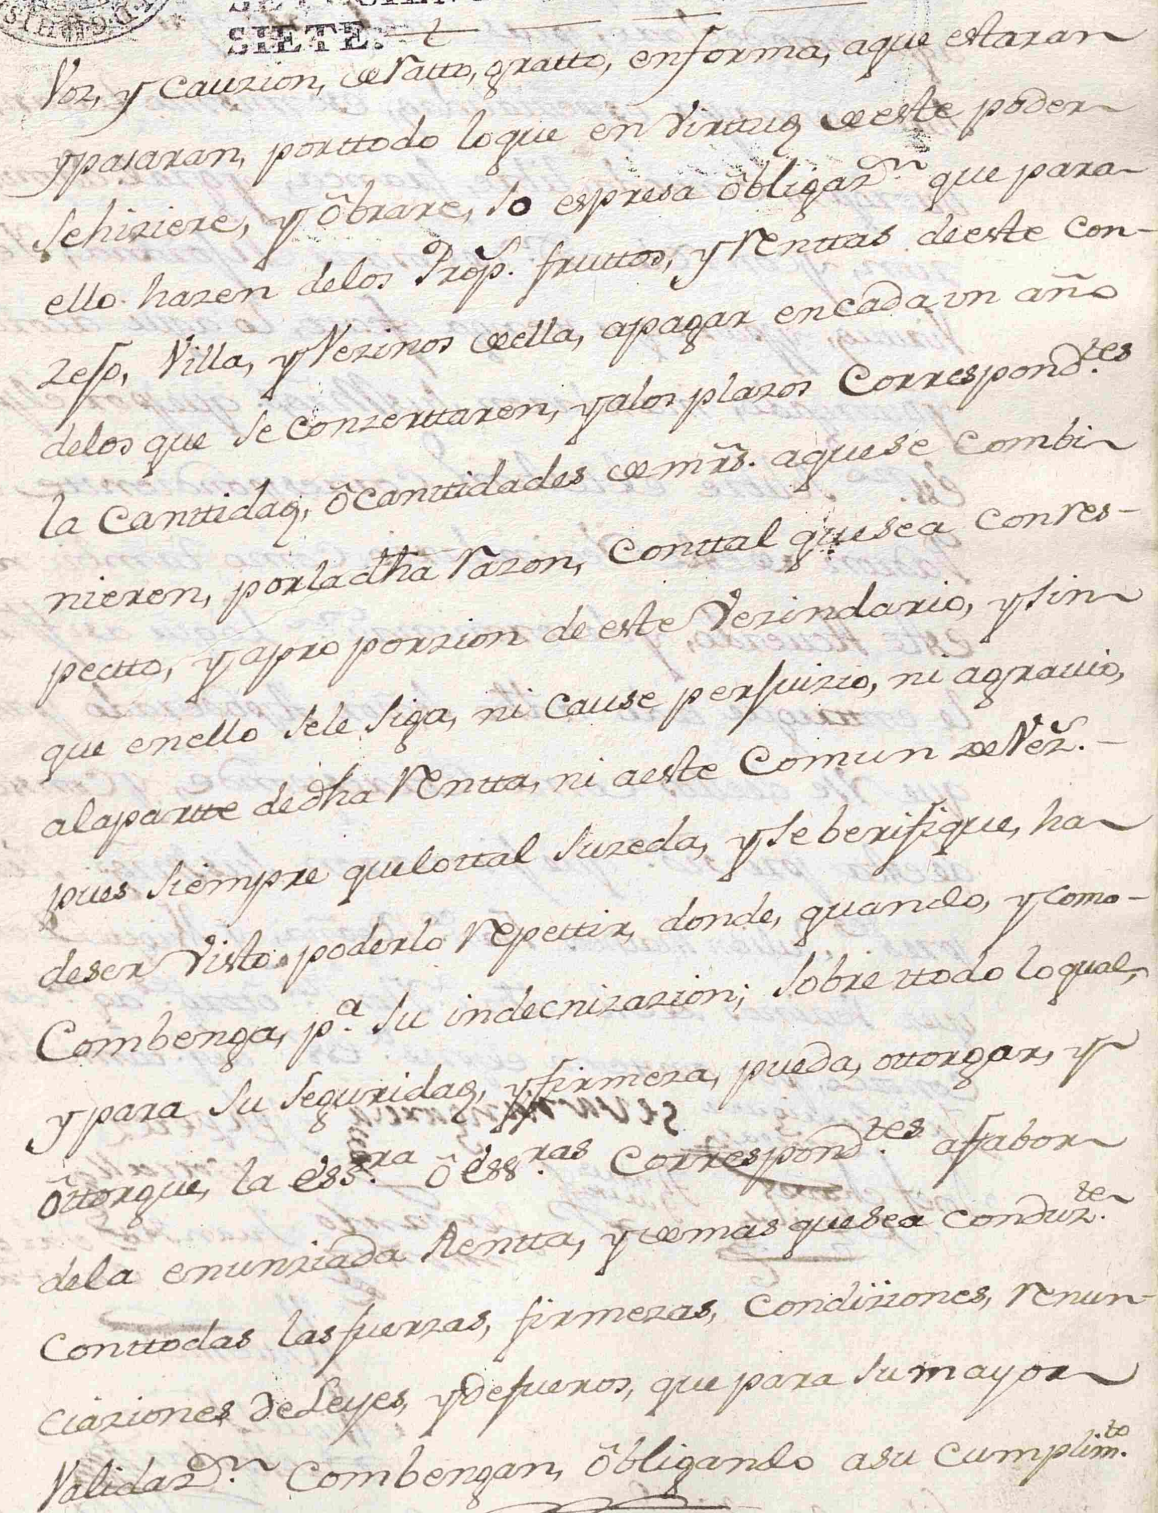 SIETE.
Voz, y Cauzion, de ratto, gratto, enforma, aque estaran
y pasaran, porttodo loque en Virttud de este poder
se hiziere, y ôbrare, so espresa ôbligazn. que para
ello hazen delos Prop.s fruttos, y Renttas de este Con-
zejo, Villa, y Vezinos de ella, apagar encada vn año
delos que se conzerttaren, y alos plazos Correspond.tes
la Canttidad, ô canttidades de mrs. aquese combi
nieren, porla dha Razon, Conttal que sea conres-
pectto, y apro porzion de este Vezindario, y sin
que enello sele siga, ni cause perjuizio, ni agrauio,
ala partte de dha Rentta, ni aeste Comun de Vez.s
pues siempre quelottal suzeda, y se berifique, ha
deser Visto poderlo Repettir, donde, quando, y como
Combenga, p.a su indecnizazion; sobre ttodo lo qual,
y para su seguridad, y firmeza, pueda, ottorgar, y
ôttorgue, la ess.ra ô ess.ras Correspond.tes afabor
dela enunziada Rentta, y demas quesea Conduz.te
Conttodas las fuerzas, firmezas, Condiziones, renun-
ciaziones de Leyes, y de fueros, que para su mayor
Validaz.n Combengan, ôbligando asu Cumplim.to